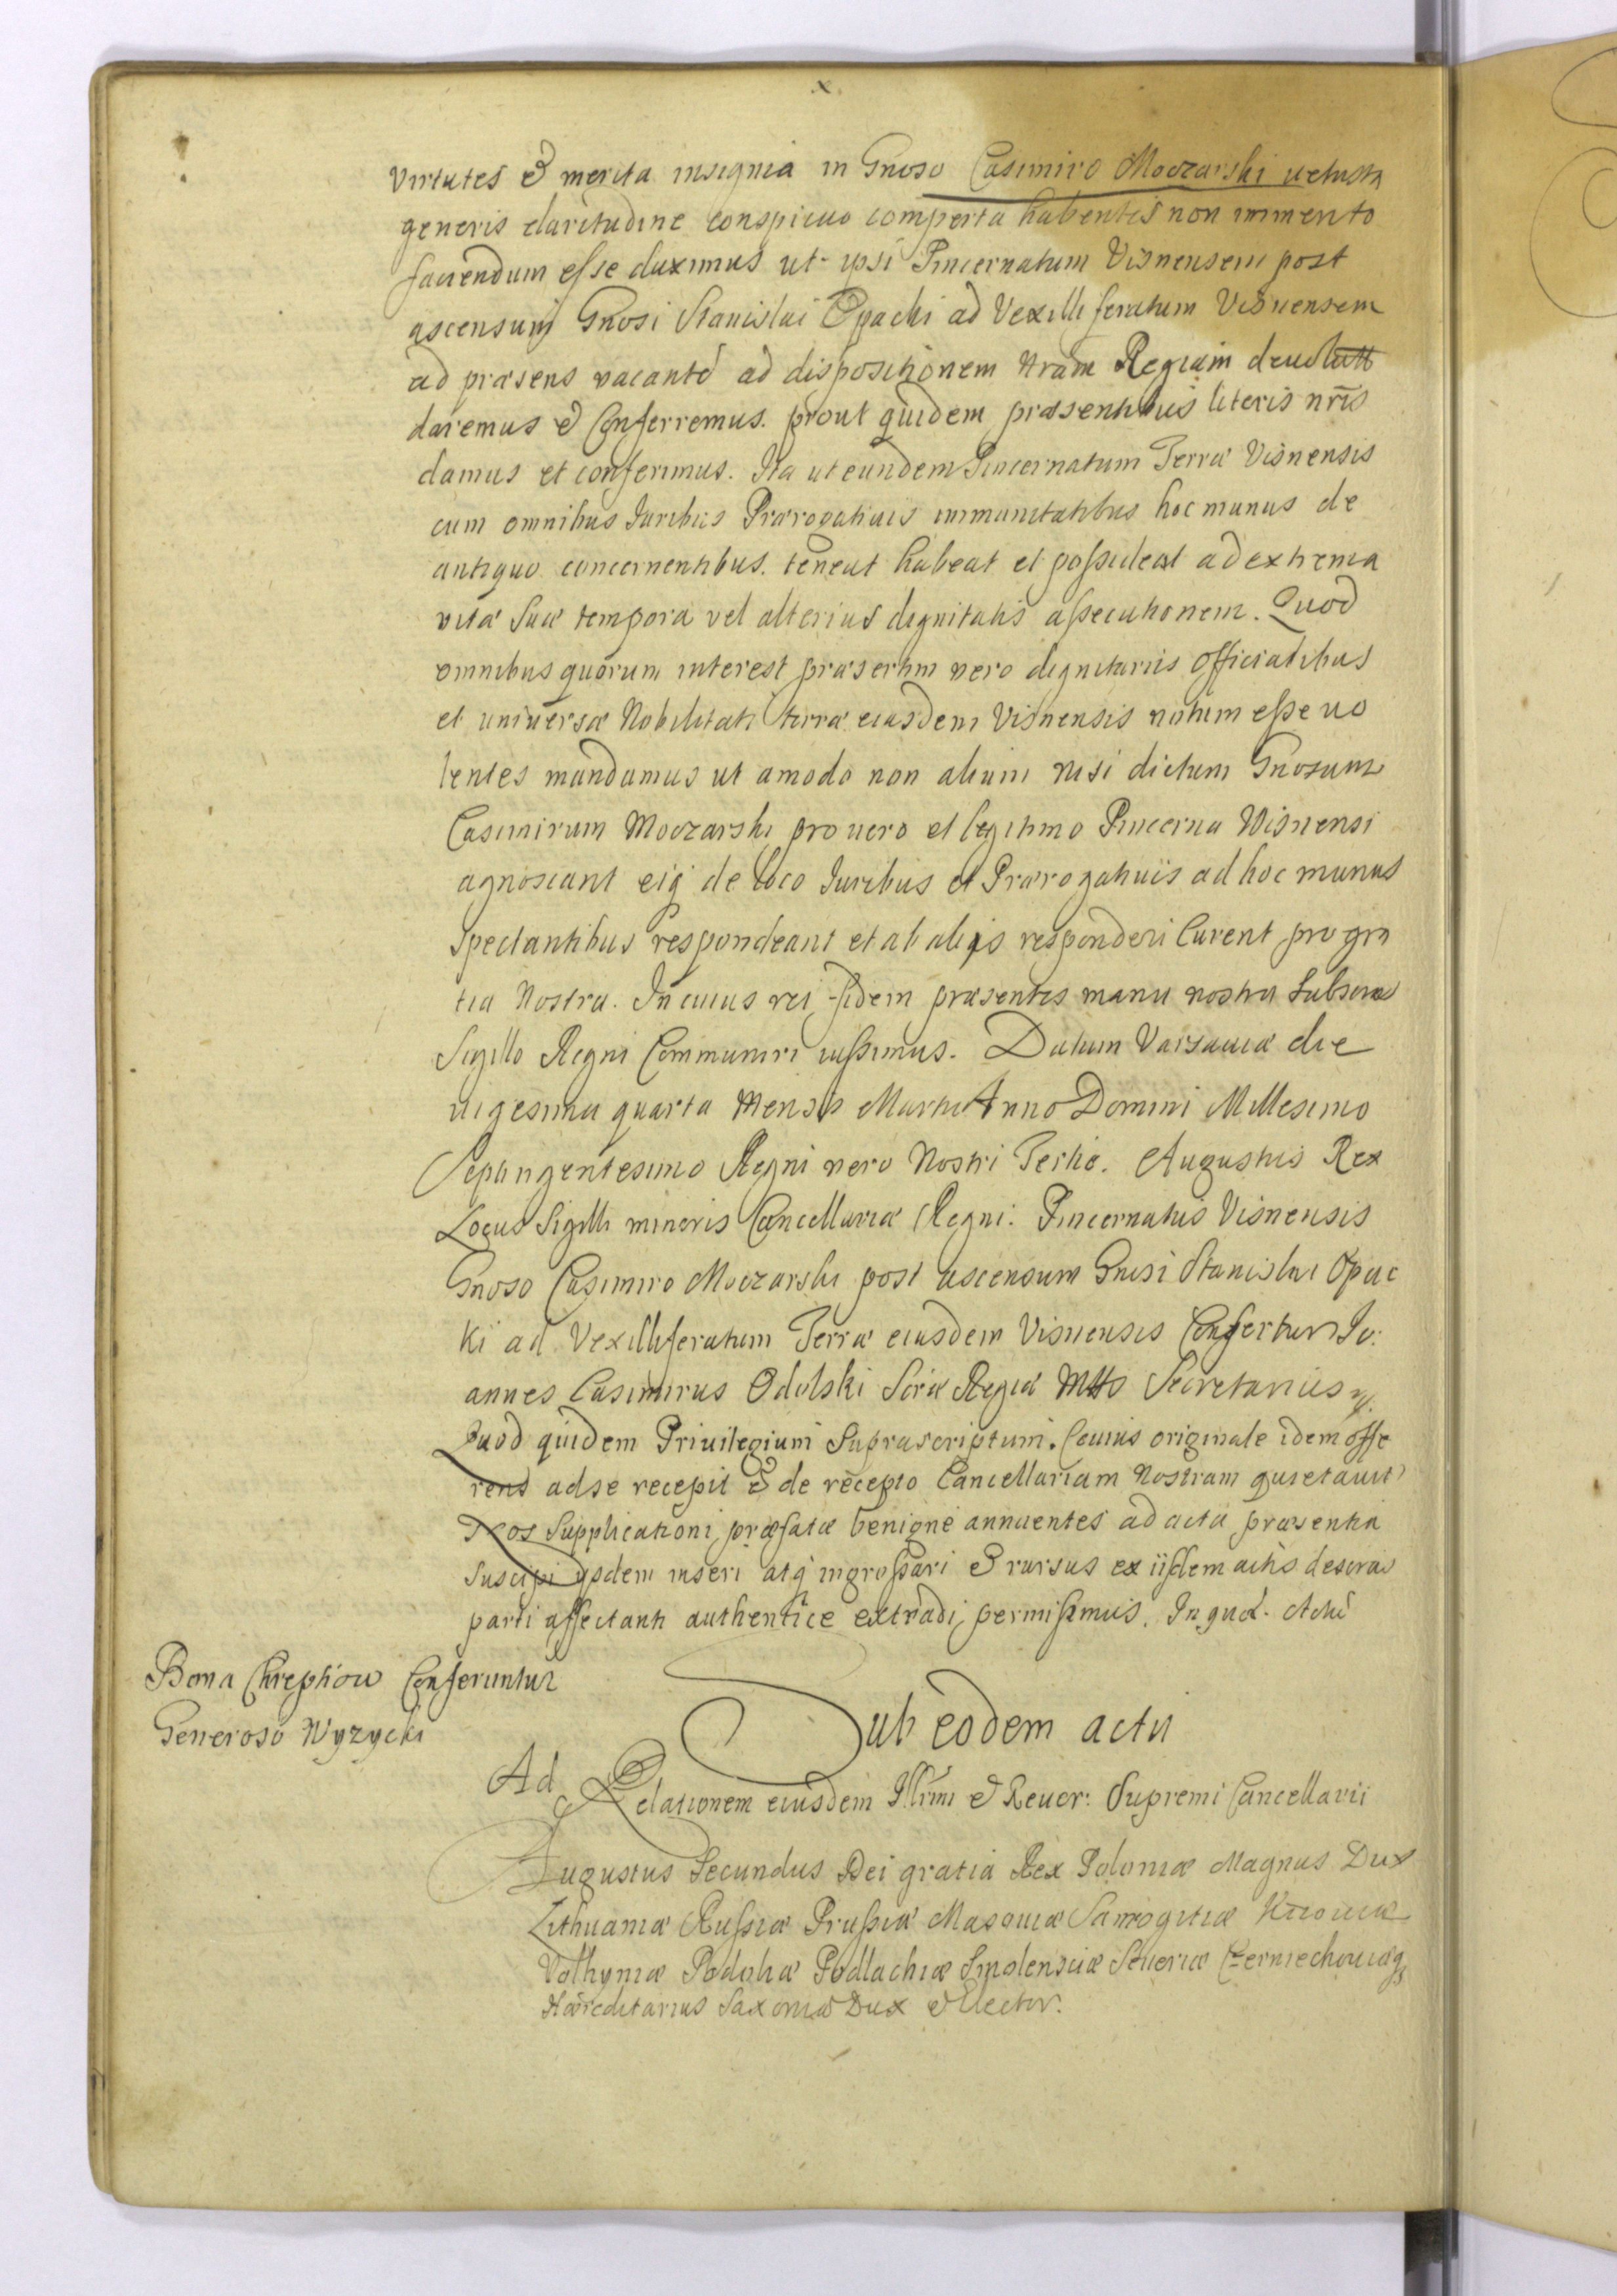 virtutes & merita insignia in Gnoso Casimiro Moczarski uetusta
generis claritudine conspicuo comperta habentes non immerito
faciendum esse duximus ut ipsi Pincernatum Visnensem post
ascensum Gnosi Stanislai Opacki ad Vexilliferatum Visnensem
ad præsens vacantē ad dispositionem Nram Regiam deuolutū
daremus & Conferremus. prout quidem præsentibus literis nris
damus et conferimus. Ita ut eundem Pincernatum Terræ Visnensis
cum omnibus Juribus Prærogatiuis immunitatibus hoc munus de
antiquo concernentibus. teneat habeat et possideat ad extrema
vitæ suæ tempora vel alterius dignitatis assecutionem. Quod
omnibus quorum interest præsertim vero dignitariis Officialibus
et uniuersæ Nobilitati terræ eiusdem Visnensis notum esse uo
lentes mandamus ut amodo non alium nisi dictum Gnosum
Casimirum Moczarski pro uero et legitimo Pincerna Visnensi
agnoscant eiq de loco Juribus et Prærogatiuis ad hoc munus
spectantibus respondeant et ab aliis responderi Curent pro gra
tia Nostra. In cuius rei fidem præsentes manu nostra subscrae
Sigillo Regni Communiri iussimus. Datum Varsauiæ die
uigesima quarta Mensis Martii Anno Domini Millesimo
Septingentesimo Regni vero Nostri Tertio. Augustus Rex
Locus Sigilli minoris Cancellariæ Regni. Pincernatus Visnensis
Gnoso Casimiro Moczarski post ascensum Gnosi Stanislai Opac
ki ad Vexilliferatum Terræ eiusdem Visnensis Confertur Jo:
annes Casimirus Odolski Scræ Regiæ Mttis Secretarius
Quod quidem Priuilegium Suprascriptum. Cuius originale idem offe
rens ad se recepit & de recepto Cancellariam Nostram quietauit
Nos Supplicationi præfatæ benigne annuentes ad acta præsentia
Suscipi ysdem inseri atq ingrossari & rursus ex iisdem actis describi
parti affectanti authentice extradi permisimus. In quo. Actū
Bona Chreptiow Conferuntur
Generoso Wyzycki
Sub eodem actu
Ad Relationem eiusdem Illrmi & Reuer: Supremi Cancellarii
Augustus Secundus Dei gratia Rex Poloniæ Magnus Dux
Lithuaniæ Russiæ Prussiæ Masouiæ Samogitiæ Kiiouiæ
Volhyniæ Podoliæ Podlachiæ Smolensciæ Seueriæ Czerniechouiæq
Hæreditarius Saxoniæ Dux & Elector.